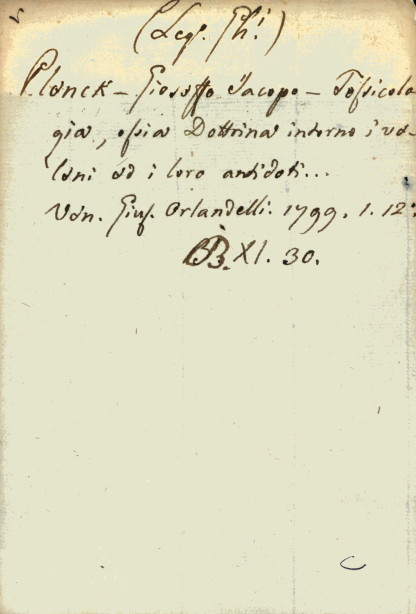 (Leg. Ghi)
Planck - Gioseffo Jacopo - Tossicolo
gia, ossia Dottrina intorno i ve-
leni ed i loro antidoti...
Ven. Gius. Orlandelli. 1799. 1. 12:
BB. XI. 30.